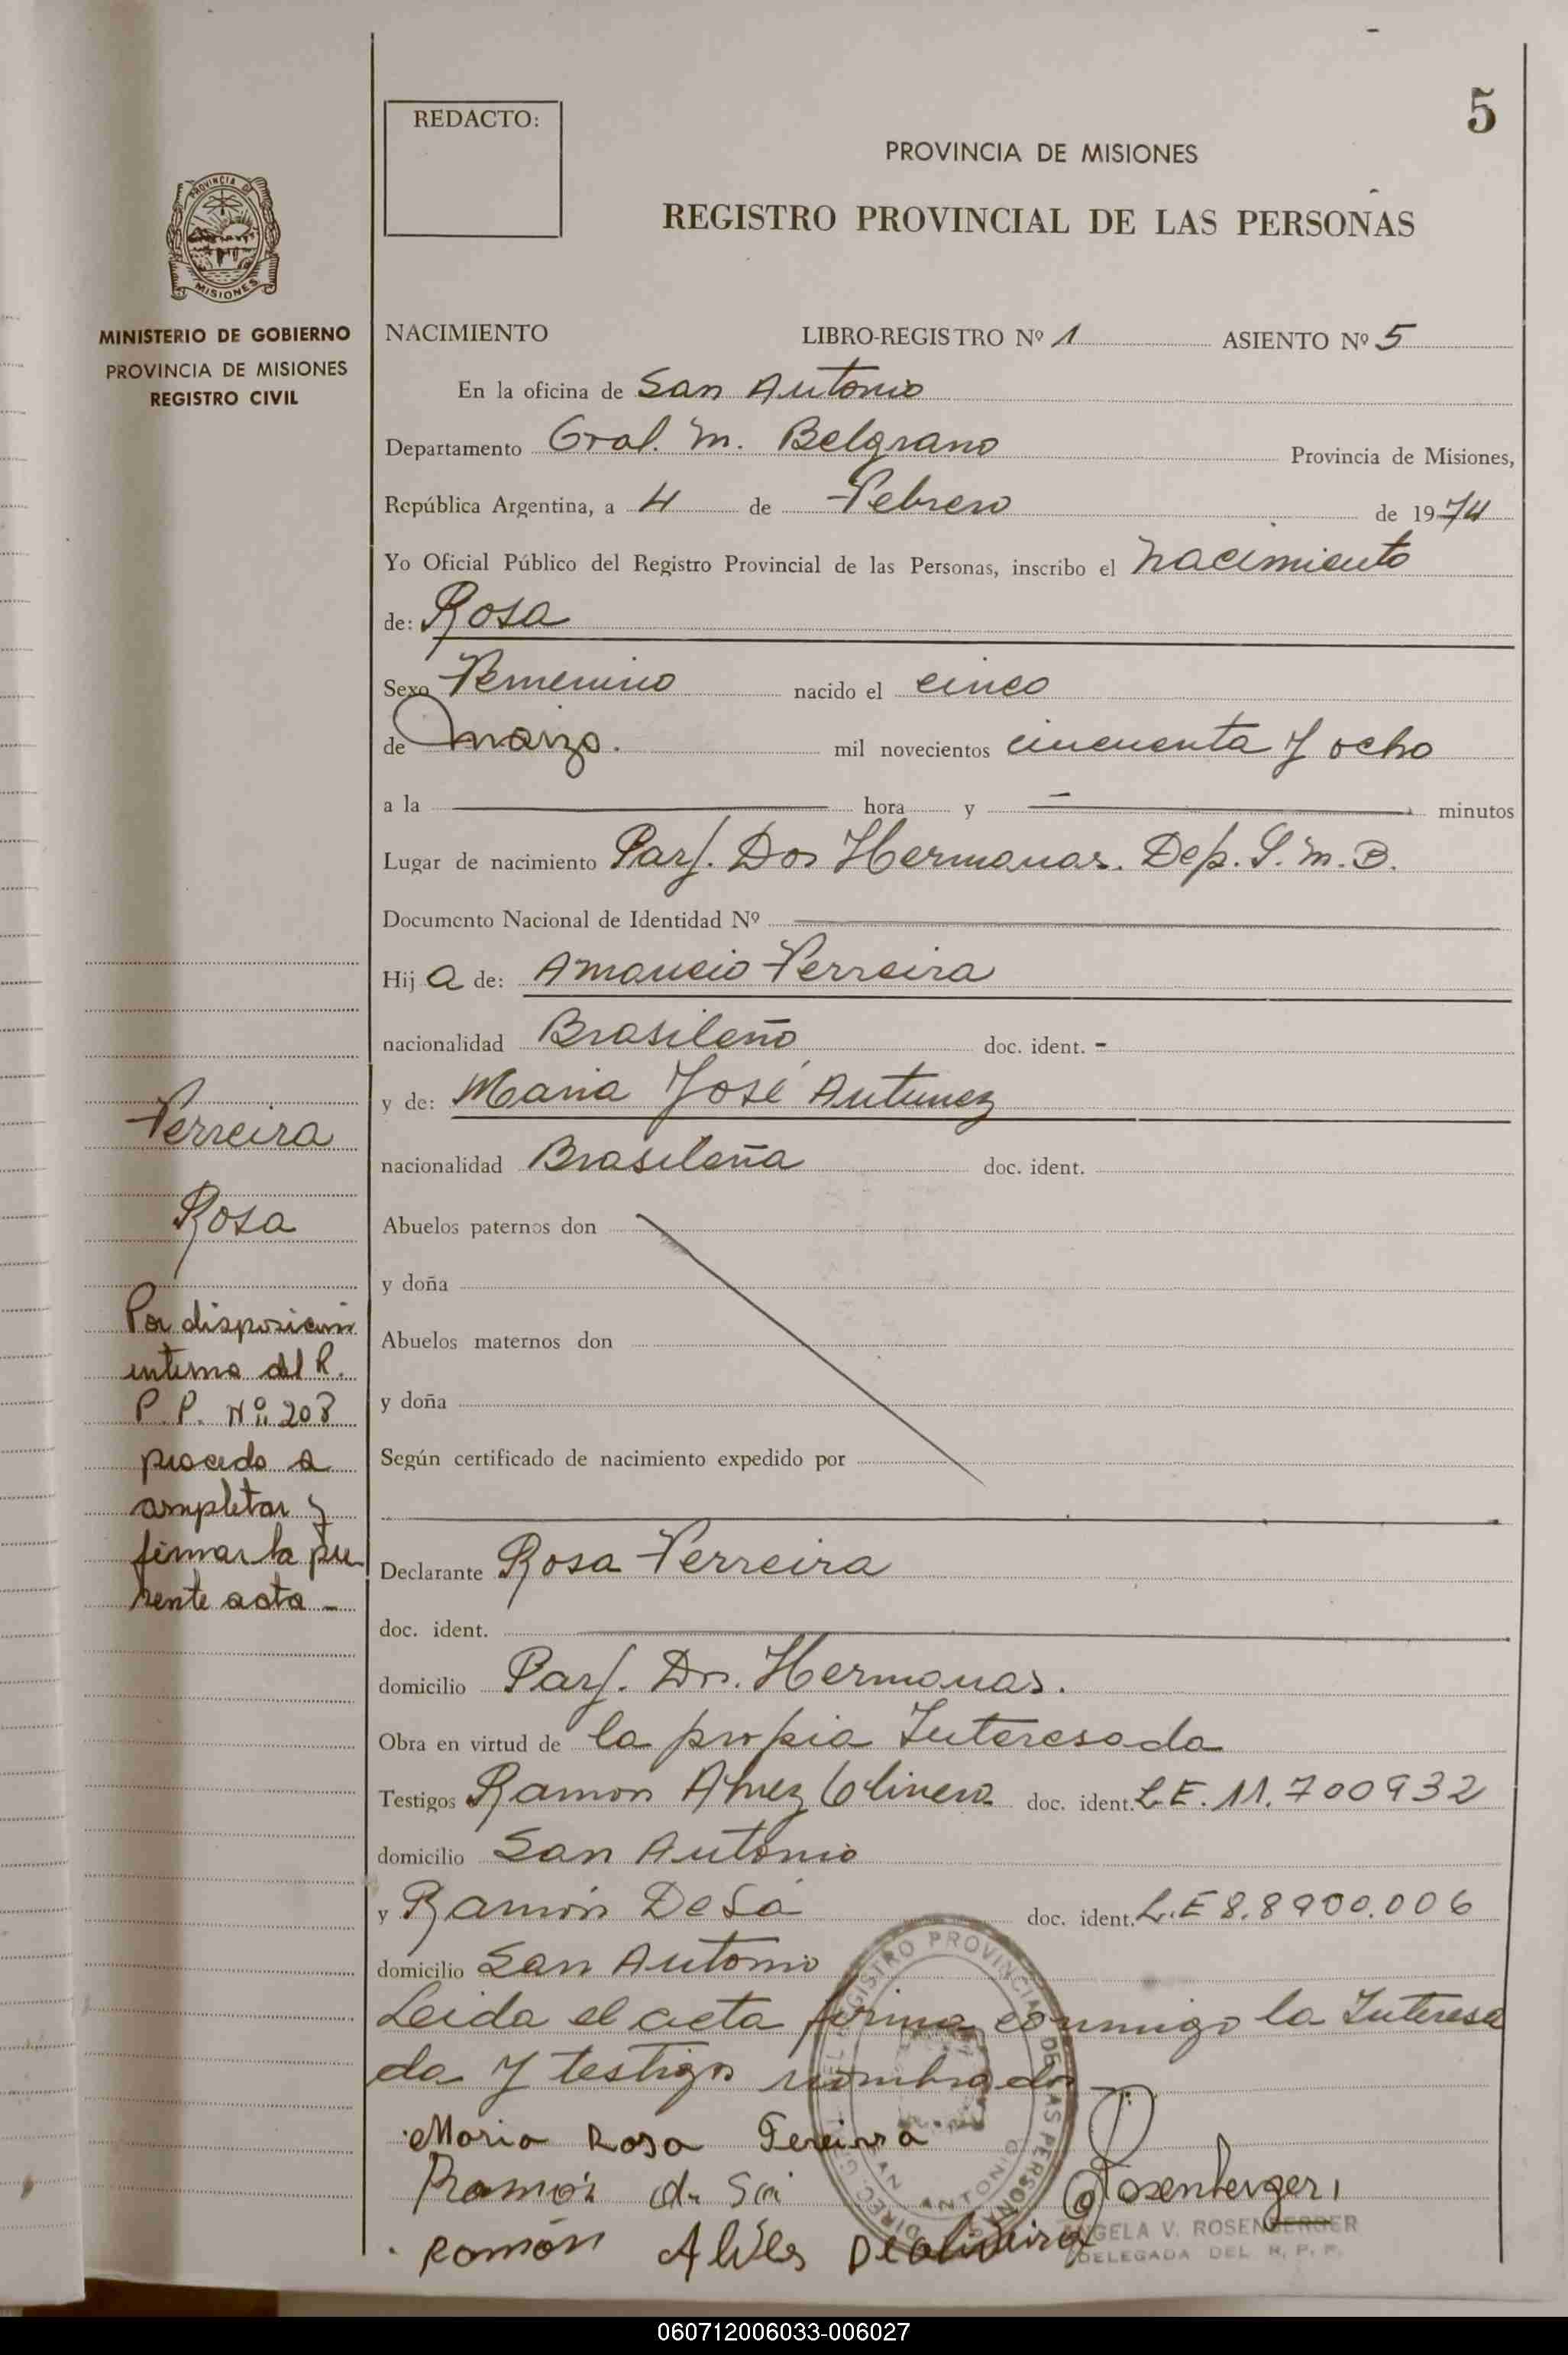 5
REDACTO:
PROVINCIA DE MISIONES
REGISTRO PROVINCIAL DE LAS PERSONAS
PROVINCIA DE
MISIONES
MINISTERIO DE GOBIERNO
PROVINCIA DE MISIONES
REGISTRO CIVIL
NACIMIENTO LIBRO-REGISTRO Nº 1 ASIENTO Nº 5
En la oficina de San Antonio
Departamento Gral. M. Belgrano Provincia de Misiones,
República Argentina, a 4 de Febrero de 1974
Yo Oficial Público del Registro Provincial de las Personas, inscribo el nacimiento
de: Rosa
Sexo Femenino nacido el cinco
de marzo. mil novecientos cincuenta y ocho
a la hora y minutos
Lugar de nacimiento Parj. Dos Hermanas. Dep. G. M. B.
Documento Nacional de Identidad Nº
Hij a de: Amancio Ferreira
nacionalidad Brasileño doc. ident. -
y de: Maria José Antunez
nacionalidad Brasileña doc. ident.
Abuelos paternos don
y doña
Abuelos maternos don
y doña
Según certificado de nacimiento expedido por
Declarante Rosa Ferreira
doc. ident.
domicilio Parj. Dos. Hermanas.
Obra en virtud de la propia Interesada
Testigos Ramon doc. ident. L.E. 11.700932
domicilio San Antonio
y Ramón De Sá doc. ident. L.E 8.8900.006
domicilio San Antonio
Leida el acta firma conmigo la Interesa
da y testigos nombrados
Ferreira
Rosa
Por disposicion
interna del R.
P. P. Nº 208
procedo a
completar y
firmar la pre
sente acta -
Maria Rosa Fereira
Ramón de Sá
Ramón Alves Deoliveira
Rosenberger
ANGELA V. ROSENBERGER
DELEGADA DEL R. P. P.
DIREC. GRAL. DEL REGISTRO PROVINCIAL DE LAS PERSONAS
SAN ANTONIO
060712006033-006027